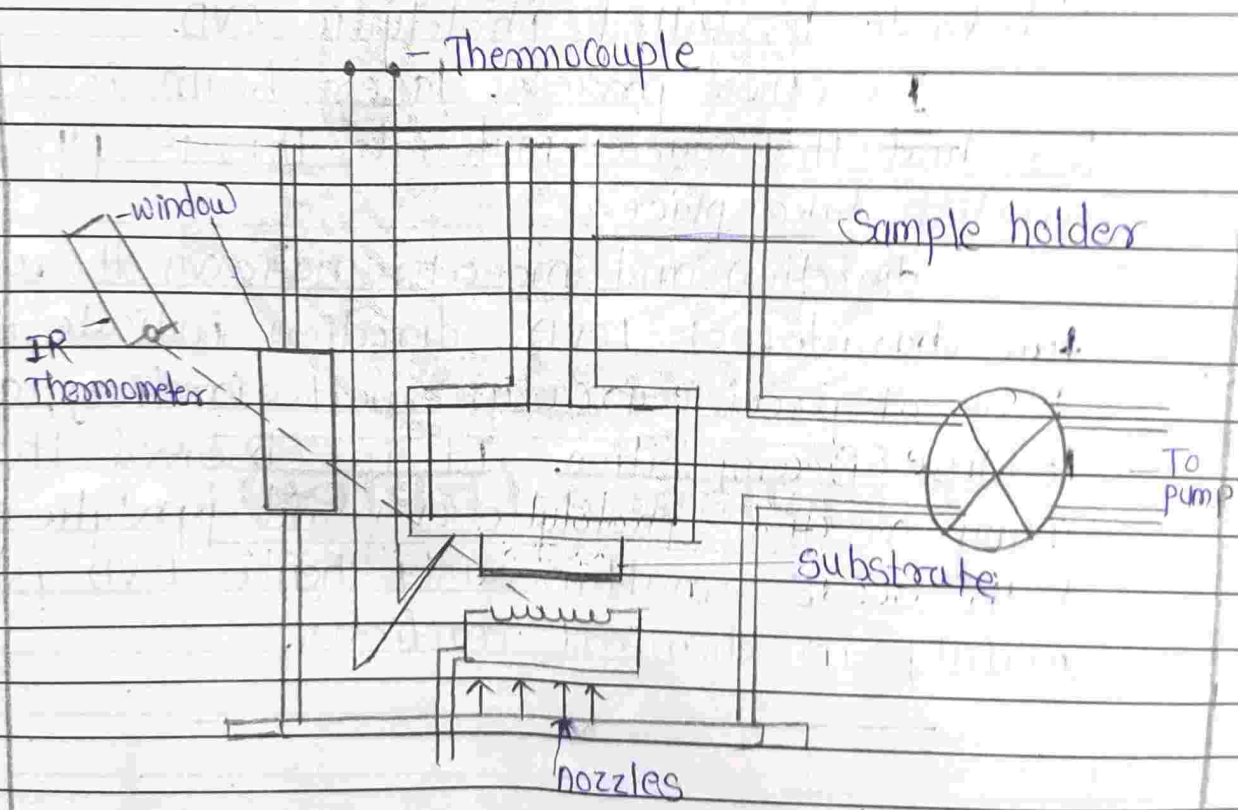 - Thermocouple
-window
Sample holder
IR
Thermometer
To
pump
Substrate
nozzles